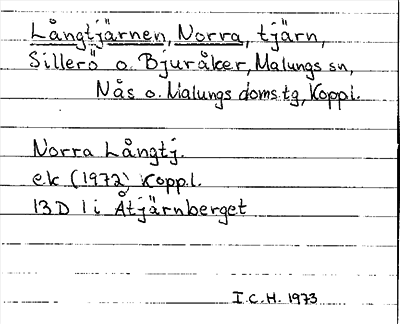 Långtjärnen, Norra, tjärn,
Sillerö o. Bjuråker, Malungs sn,
Nås o. Malungs doms.tg, Koppl.
Norra Långtj.
ek (1972) Koppl.
13D 1i Åtjärnberget
I.C.H. 1973